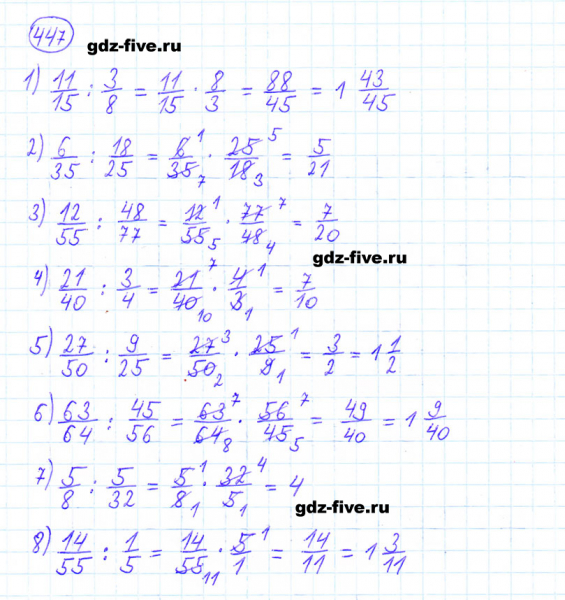 447
gdz-five.ru
1) 11/15 : 3/8 = 11/15 · 8/3 = 88/45 = 1 43/45
2) 6/35 : 18/25 = 6/35 · 25/18 1 7 5 3 = 5/21
3) 12/55 : 48/77 = 12/55 · 77/48 1 5 7 4 = 7/20
gdz-five.ru
4) 21/40 : 3/4 = 21/40 · 4/3 7 10 1 1 = 7/10
5) 27/50 : 9/25 = 27/50 · 25/9 3 2 1 1 = 3/2 = 1 1/2
6) 63/64 : 45/56 = 63/64 · 56/45 7 8 7 5 = 49/40 = 1 9/40
7) 5/8 : 5/32 = 5/8 · 32/5 1 1 4 1 = 4
gdz-five.ru
8) 14/55 : 1/5 = 14/55 · 5/1 11 1 = 14/11 = 1 3/11